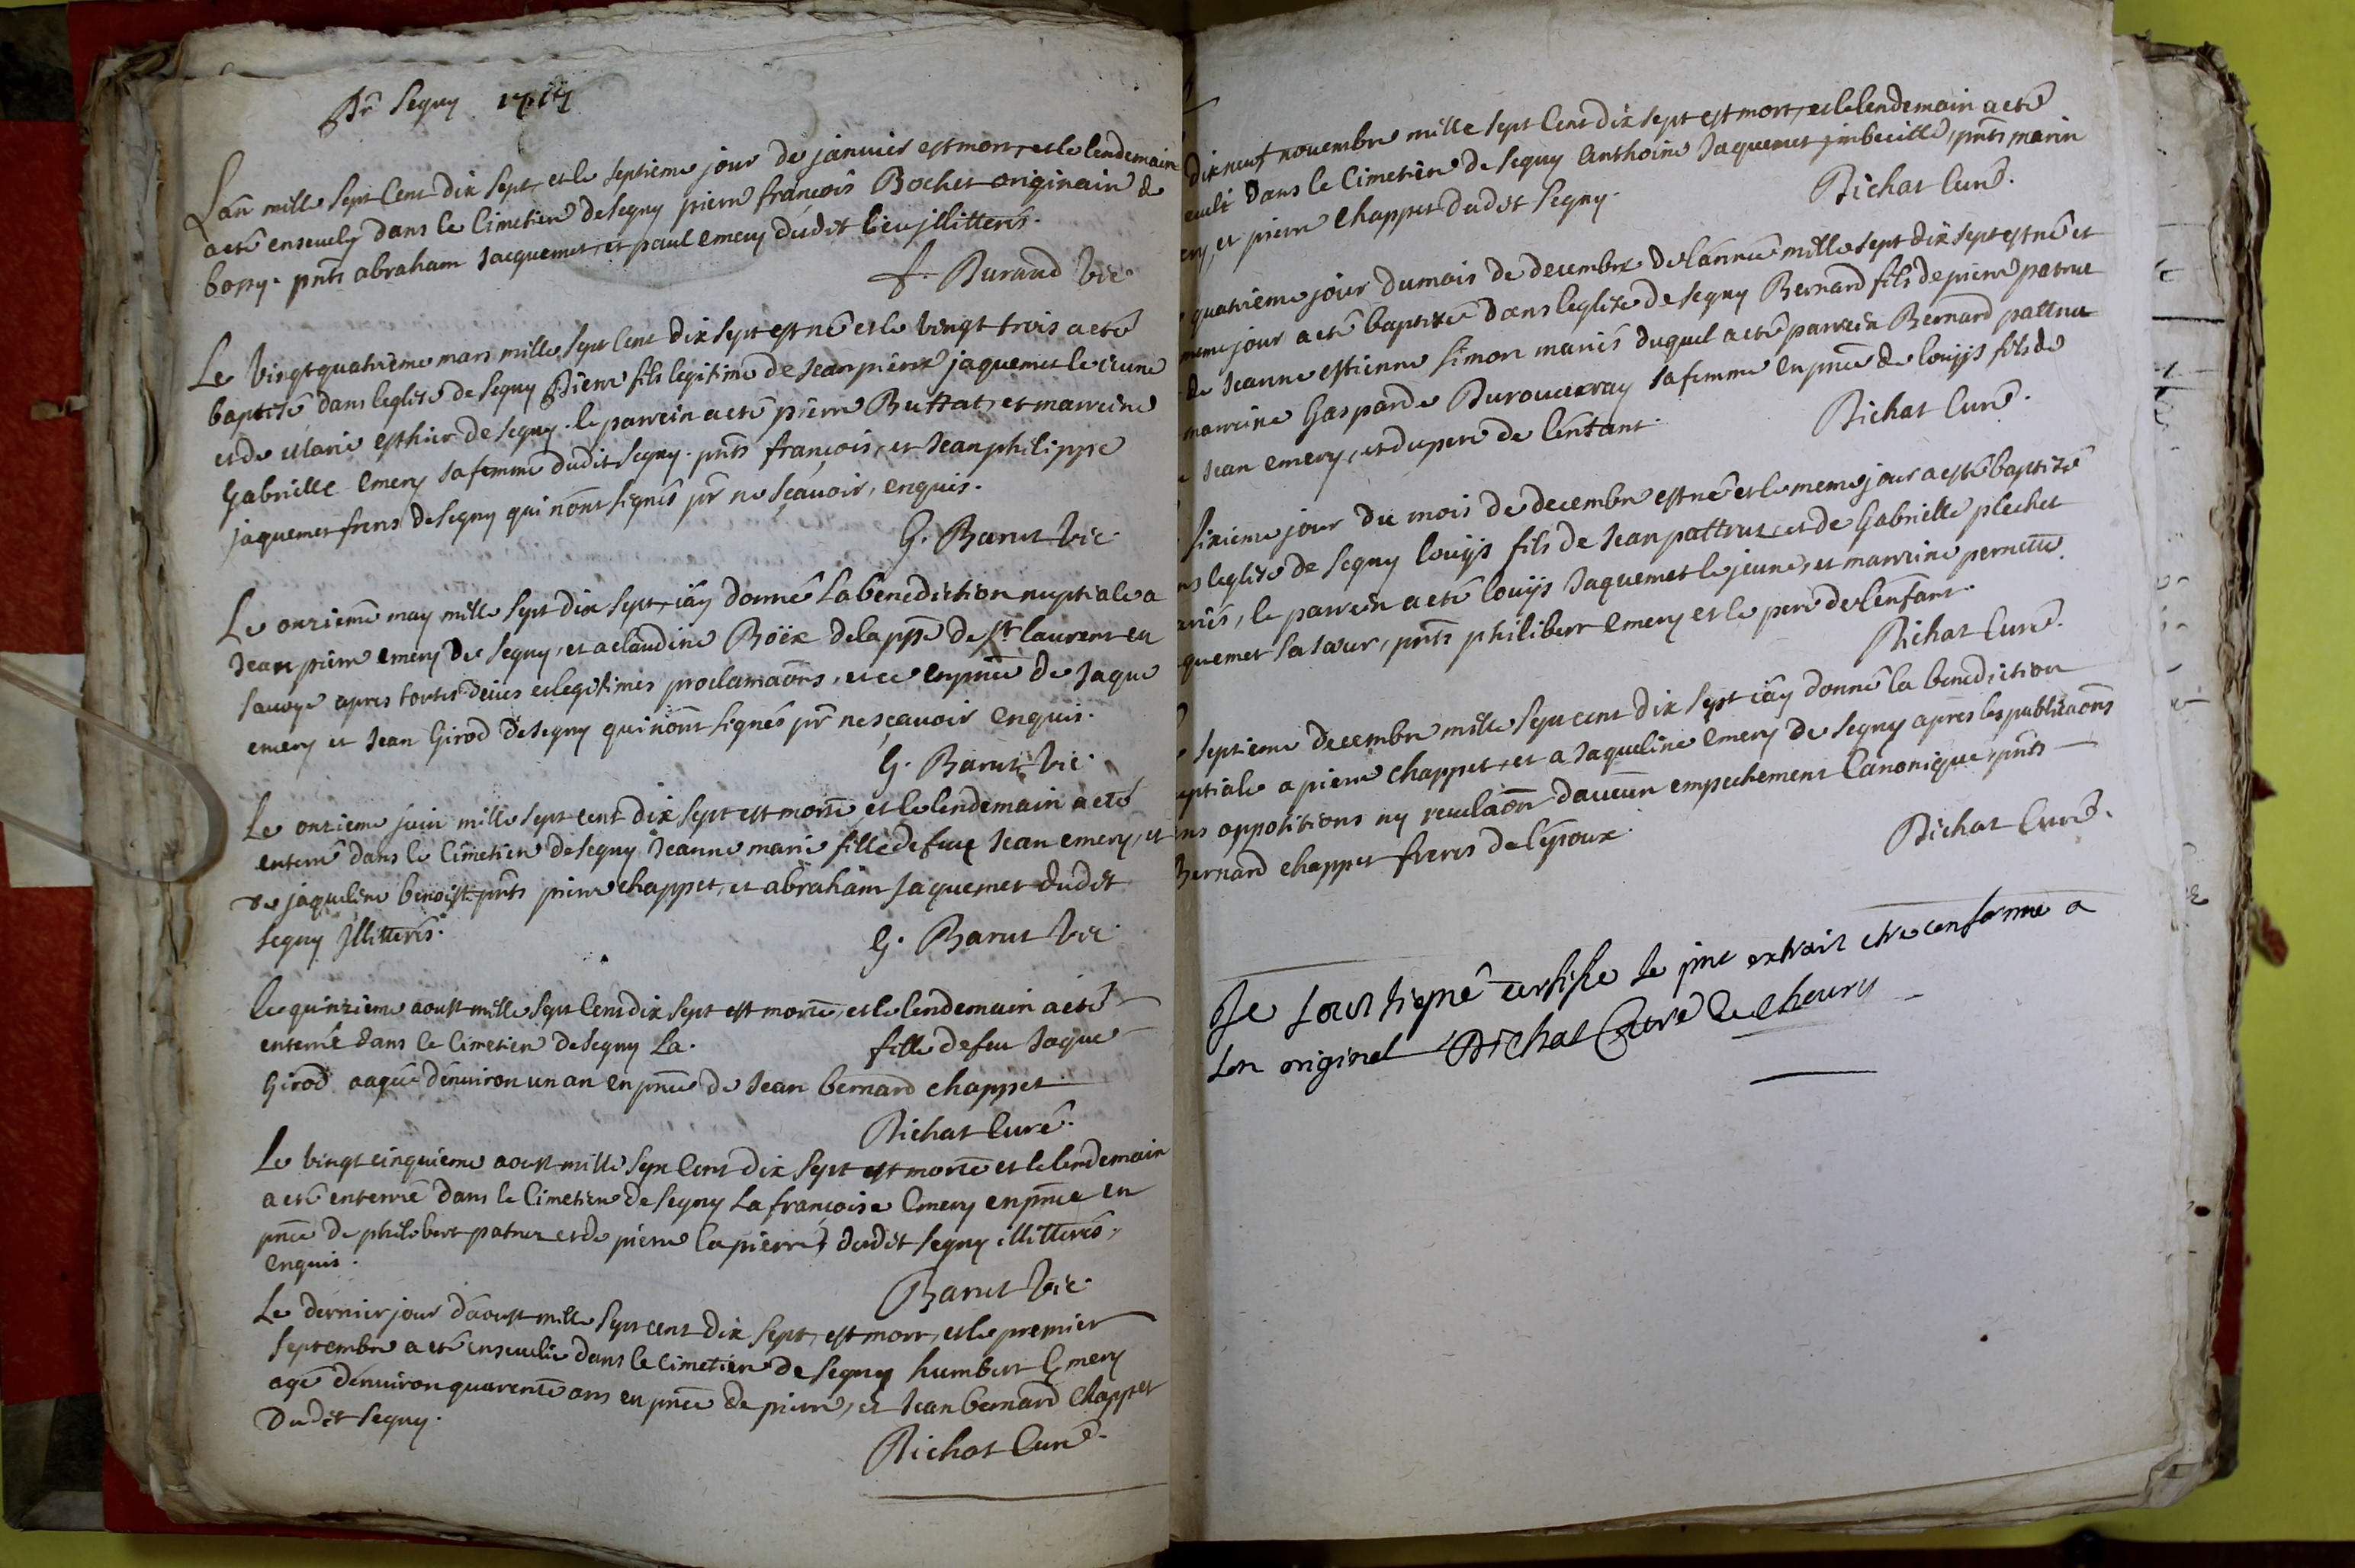 Pr Segny 1717
L'an mille sept cent dix sept, et le septieme jour de janvier est mort, et le lendemain
a eté ensevely dans le Cimetiere de Segny pierre françois Bochet originaire de
bossy. pnts abraham Jacquemet, et paul emery dudit lieu illitterés.
f. Burand vic
Le vingt quatrieme mars mille sept cent dix sept est né et le vingt trois a eté
baptisé dans leglise de Segny Pierre fils legitime de Jean pierre jaquemet le jeune
et de Marie esthier de segny. le parrein a eté pierre Buttat, et marreine
Gabrielle emery sa femme dudit Segny. pnts françois, et Jean philippe
jaquemet freres de Segny qui n'ont signés pr ne sçavoir, enquis.
G. Barut vic.
Le onzieme may mille sept dix sept, iäy donné la benediction nuptiale a
Jean pierre emery de Segny, et a claudine Böëx de la ppe de st laurent en
Savoye apres toutes deües et legitimes proclamaons, et ce en pnce de Jaque
emery et Jean Girod de segny qui n'ont signés pr ne sçavoir enquis.
G. Barut vic.
Le onzieme juin mille sept cent dix sept est morte et le lendemain a eté
enterré dans le Cimetiere de segny Jeanne marie fille de feue Jean emery, et
de jaqueline benoist pnts pierre chappet, et abraham jaquemet dudit
Segny Illitterés.
G. Barut vic.
le quinzieme aoust mille sept cent dix sept est morte, et le lendemain a eté
enterré dans le Cimetiere de Segny La. fille de feu Jaque
Girod aagée d'environ un an en pnce de Jean bernard chappet
Richat Curé.
Le vingt cinquieme aoust mille sept cent dix sept est morte et le lendemain
a eté enterrée dans le Cimetiere de Segny La françoise Emery en pnce en
pnce de philibert patrue et de pierre la pierre dudit segny illitterés,
enquis.
Barut vic.
Le dernier jour d'aoust mille sept cent dix sept, est mort, et le premier
Septembre a eté ensevelie dans le Cimetiere de Segny humbert Emery
agé d'environ quarente ans en pnce de pierre, et Jean bernard Chappet
Dudit Segny.
Richat Curé.
dix neuf novembre mille sept cent dix sept est mort, et le lendemain a eté
eveli dans le Cimetiere de segny Anthoine Jaquemet jmbecille, pnts marin
ery, et pierre chappet dudit Segny.
Richat Curé.
quatrieme jour du mois de decembre de l'année mille sept dix sept est né et
meme jour a eté baptisé dans leglise de segny Bernard fils de pierre patrue
de Jeanne estienne simon mariés duquel a eté parrein Bernard pattrue
marreine Gasparde Durouverray sa femme en pnce de louÿs fils de
Jean emery, et du pere de l'enfant.
Richat Curé.
sixieme jour du mois de decembre est né et le meme jour a esté baptisé
ns leglise de segny louÿs fils de Jean pattrue, et de Gabrielle plechet
ariés, le parrein a eté louÿs Jaquemet le jeune, et marreine pernette
quemet sa sœur, pnts philibert emery et le pere de l'enfant.
Richat Curé.
septieme decembre mille sept cent dix sept iäy donné la benediction
uptiale a pierre chappet, et a Jaqueline emery de Segny apres les publicaons
ns oppositions ny revelaon d'aucun empechement Canonique, pnts
Bernard chappet freres de l'epoux.
Richat Curé.
Je soussigné certifie le pnt extrait etre conforme a
son original Richat Curé de Chevry